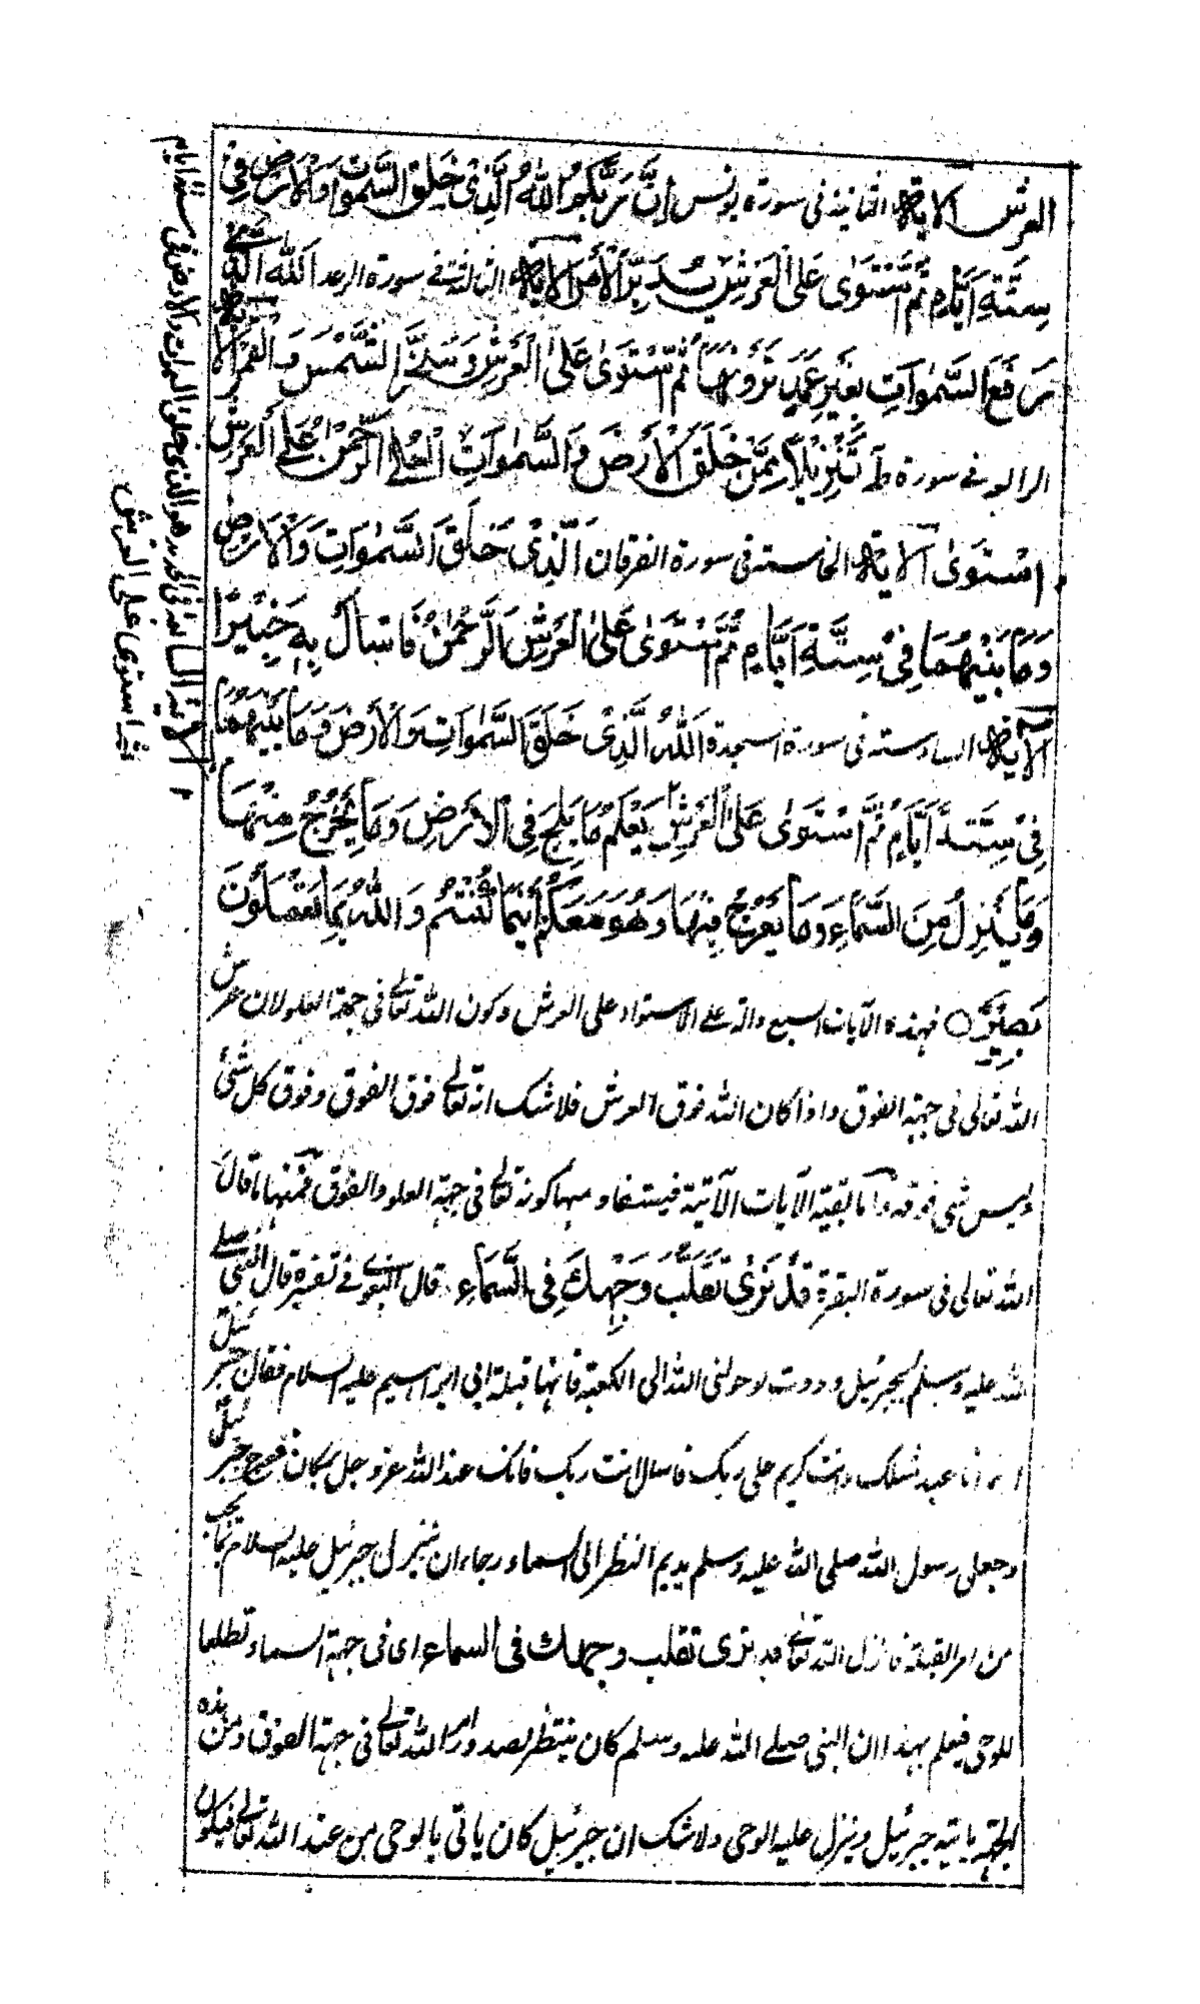 العرش الاية الثانية فى سورة يونس اِنَّ رَبَّكُمُ اللّٰهُ الَّذِىْ خَلَقَ السَّمٰوَاتِ وَالْاَرْضَ فِىْ
سِتَّةِ اَيَّامٍ ثُمَّ اسْتَوٰى عَلَى الْعَرْشِ يُدَبِّرُ الْاَمْرَ الاية الثالثة فى سورة الرعد اَللّٰهُ الَّذِىْ
رَفَعَ السَّمٰوَاتِ بِغَيْرِ عَمَدٍ تَرَوْنَهَا ثُمَّ اسْتَوٰى عَلَى الْعَرْشِ وَسَخَّرَ الشَّمْسَ وَالْقَمَرَ الاية
الرابعة فى سورة طه تَنْزِيْلًا مِمَّنْ خَلَقَ الْاَرْضَ وَالسَّمٰوَاتِ الْعُلٰى اَلرَّحْمٰنُ عَلَى الْعَرْشِ
اسْتَوٰى الاية الخامسة فى سورة الفرقان اَلَّذِىْ خَلَقَ السَّمٰوَاتِ وَالْاَرْضَ
وَمَا بَيْنَهُمَا فِىْ سِتَّةِ اَيَّامٍ ثُمَّ اسْتَوٰى عَلَى الْعَرْشِ اَلرَّحْمٰنُ فَاسْاَلْ بِهٖ خَبِيْرًا
الاية السادسة فى سورة السجدة اَللّٰهُ الَّذِىْ خَلَقَ السَّمٰوَاتِ وَالْاَرْضَ وَمَا بَيْنَهُمَا
فِىْ سِتَّةِ اَيَّامٍ ثُمَّ اسْتَوٰى عَلَى الْعَرْشِ يَعْلَمُ مَا يَلِجُ فِى الْاَرْضِ وَمَا يَخْرُجُ مِنْهَا
وَمَا يَنْزِلُ مِنَ السَّمَاءِ وَمَا يَعْرُجُ فِيْهَا وَهُوَ مَعَكُمْ اَيْنَمَا كُنْتُمْ وَاللّٰهُ بِمَا تَعْمَلُوْنَ
بَصِيْرٌ ○ فهذه الآيات السبع دالة على الاستواء على العرش وكون الله تعالى فى جهة العلو لان عرش
الله تعالى فى جهة الفوق واذا كان الله فوق العرش فلاشك انه تعالى فوق الفوق وفوق كل شئ
وليس شئ فوقه واما بقية الآيات الآتية فيستفاد منها كونه تعالى فى جهة العلو والفوق فمنها ما قال
الله تعالى فى سورة البقرة قَدْ نَرٰى تَقَلُّبَ وَجْهِكَ فِى السَّمَاءِ قال البغوى فى تفسيره قال النبى صلى
الله عليه وسلم لجبرئيل وددت لو حولنى الله الى الكعبة فانها قبلة ابى ابراهيم عليه السلام فقال جبرئيل
انما انا عبد مثلك وانت كريم على ربك فاسال انت ربك فانك عند الله عز وجل بمكان فعرج جبرئيل
وجعل رسول الله صلى الله عليه وسلم يديم النظر الى السماء رجاء ان ينزل جبرئيل عليه السلام بما يحب
من امر القبلة فانزل الله تعالى قد نرى تقلب وجهك فى السماء اى فى جهة السماء تطلعا
للوحى فيعلم بهذا ان النبى صلى الله عليه وسلم كان ينتظر لصدور امر الله تعالى فى جهة الفوق ومن هذه
الجهة ياتيه جبرئيل وينزل عليه الوحى ولاشك ان جبرئيل كان ياتى بالوحى من عند الله تعالى فيكون
الاية السابعة فى الحديد هو الذى خلق السموات والارض فى ستة ايام
ثم استوى على العرش